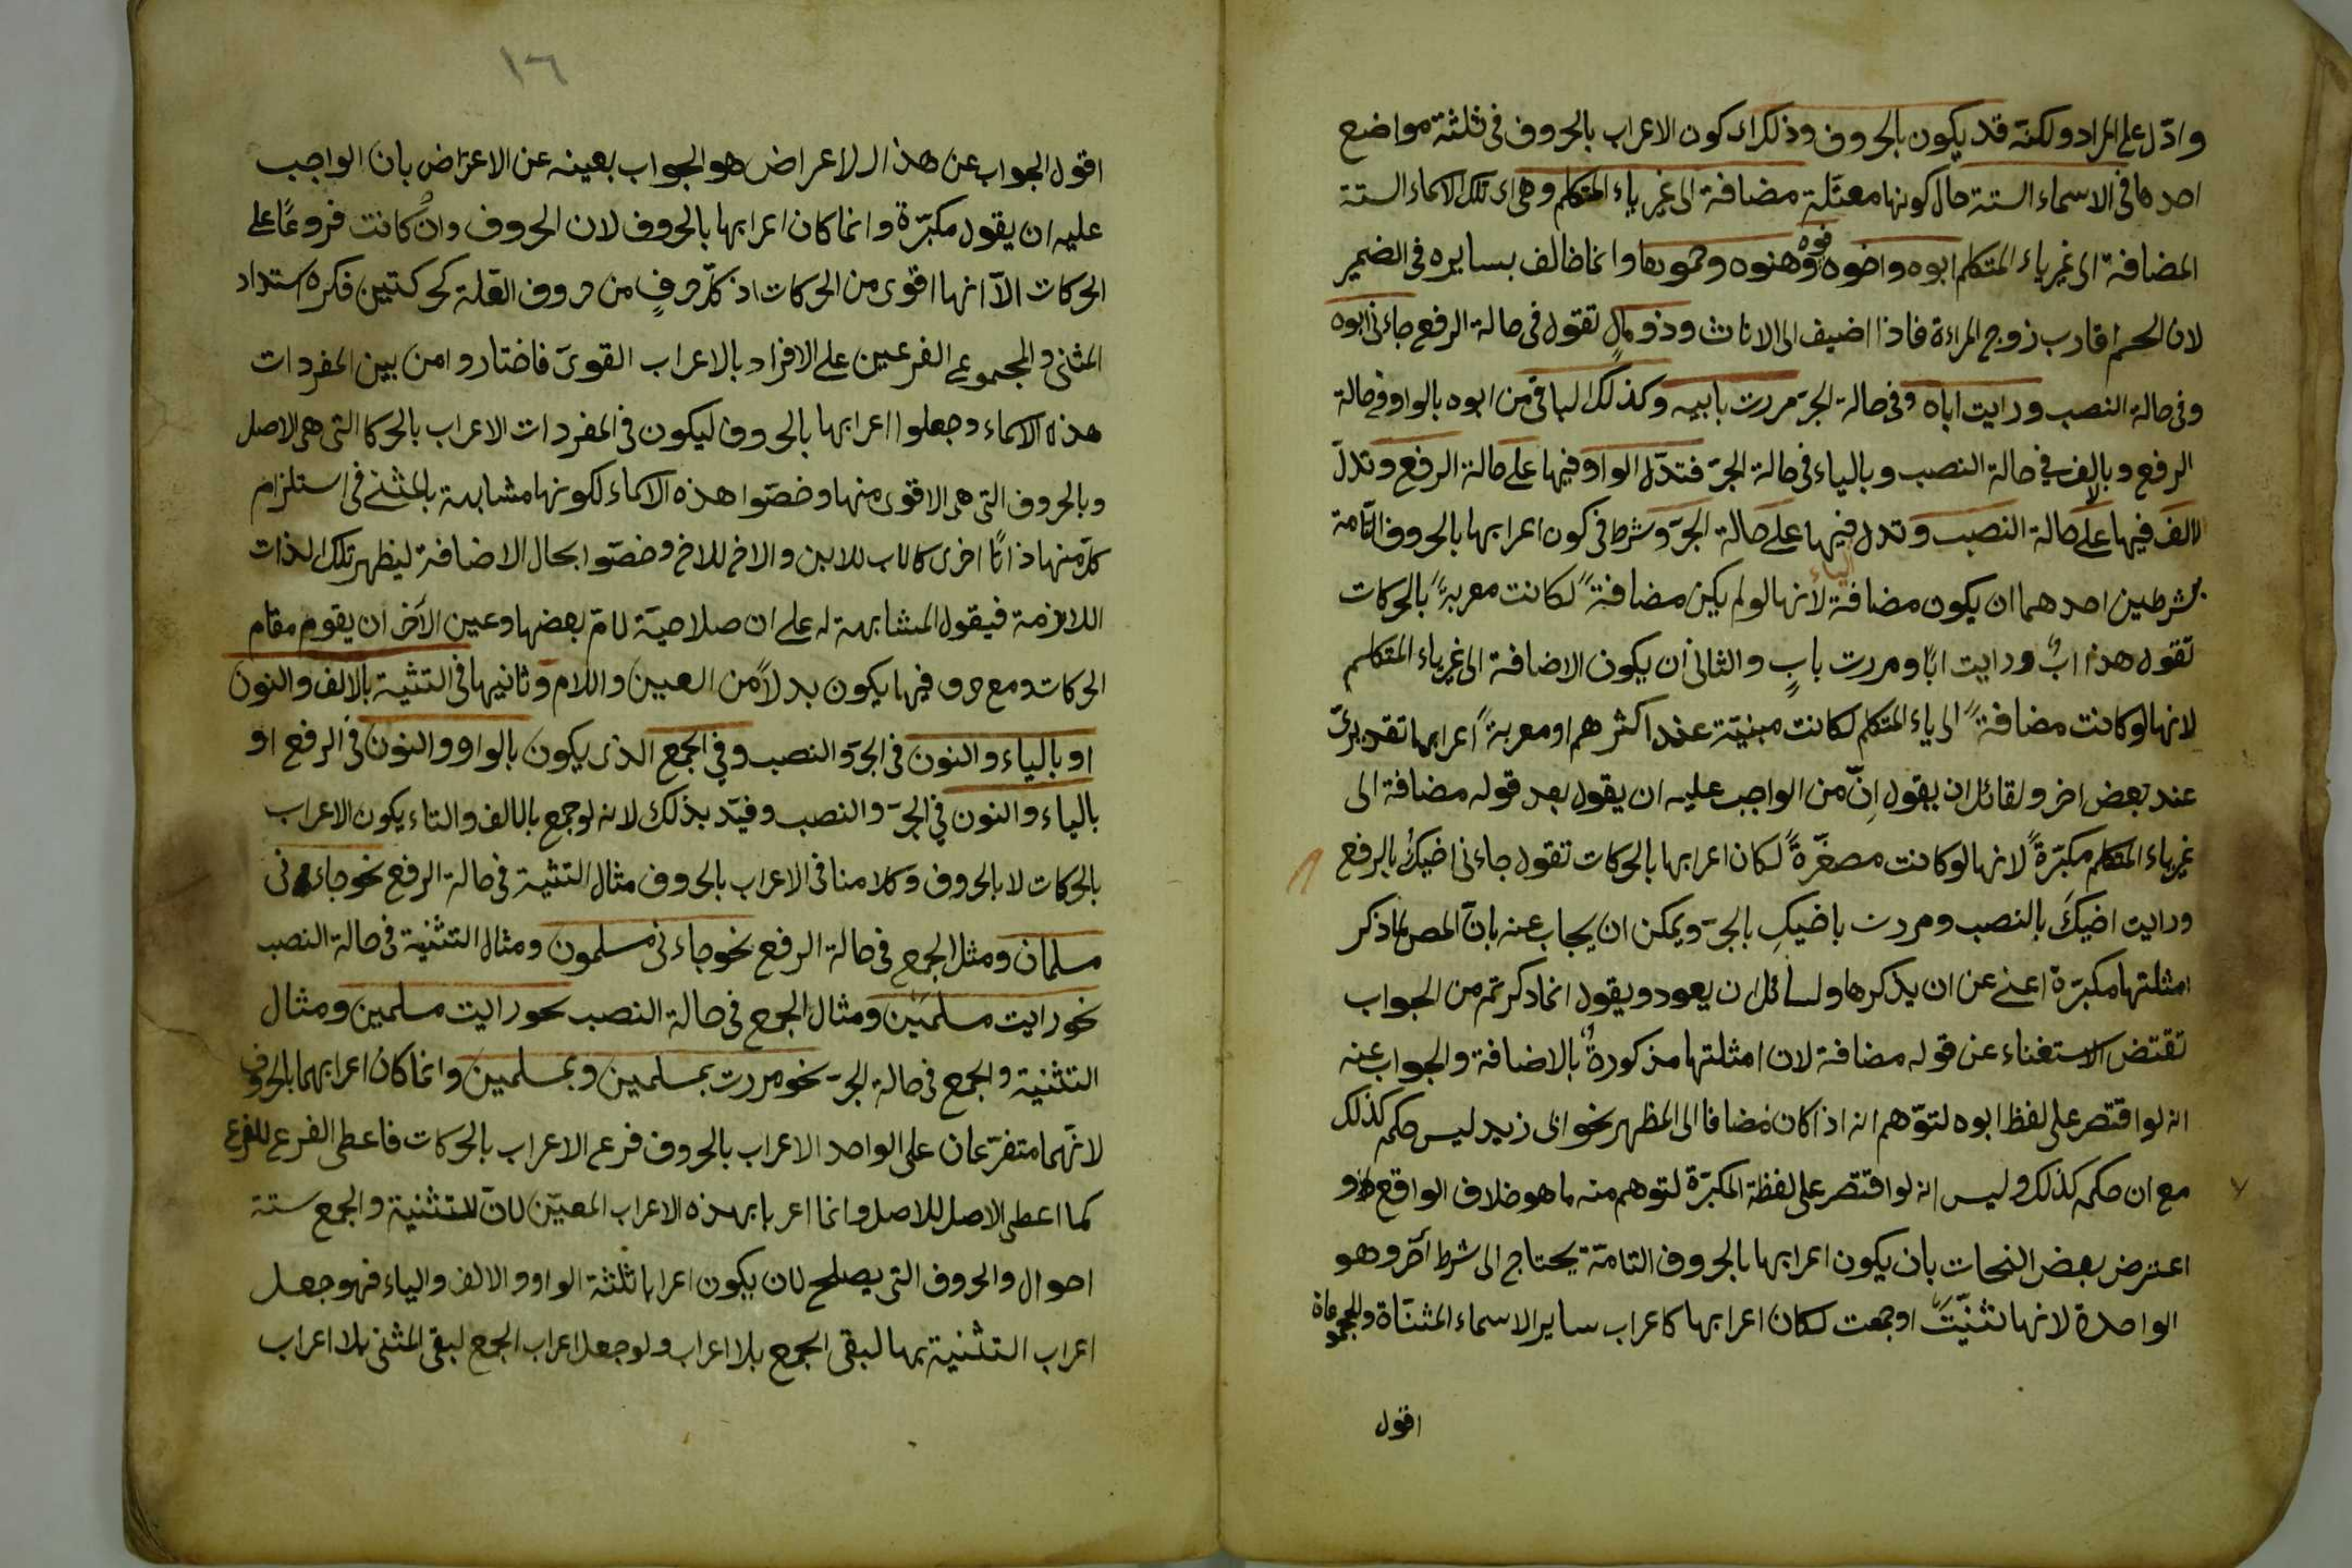 وادّل على المراد ولكنّه قد يكون بالحروف وذلك اى كون الاعراب بالحروف فى ثلثة مواضع
احدها فى الاسماء الستة حال كونها معتلّة مضافة الى غير ياء المتكلم وهى اى تلك الاسماء الستة
المضافة الى غير ياء المتكلم ابوه واخوه وفوه وهنوه وحموها وانما خالف بسايره فى الضمير
لان الحم اقارب زوج المراءة فاذا اضيف الى الاناث وذو مالٍ تقول فى حالة الرفع جاءنى ابوه
وفى حالة النصب ورايت اباه وفى حالة الجرّ مررت بابيه وكذلك الباقى من ابوه بالواو فى حالة
الرفع وبالالف فى حالة النصب وبالياء فى حالة الجرّ فتدّل الواو فيها على حالة الرفع وتدلّ
الالف فيها على حالة النصب وتدل الياء فيها على حالة الجرّ وشرط فى كون اعرابها بالحروف التّامة
بشرطين احدهما ان يكون مضافة لانها لو لم يكن مضافةً لكانت معربةً بالحركات
تقول هذا ابٌ ورايت ابًا ومررت بابٍ والثانى ان يكون الاضافة الى غير ياء المتكلم
لانها لو كانت مضافةً الى ياء المتكلم لكانت مبنيّة عند اكثرهم او معربةً اعرابها تقديرىّ
عند بعض اخر ولقائل ان يقول اِنّ من الواجب عليه ان يقول بعد قوله مضافة الى
غير ياء المتكلم مكبّرةً لانها لو كانت مصغّرةً لكان اعرابها بالحركات تقول جاءنى اخيكُ بالرفع
ورايت اخيكَ بالنصب ومررت باخيكِ بالجرّ ويمكن ان يجاب عنه بانّ المص لما ذكر
امثلتها مكبّرة اغنى عن ان يذكرها ولسائل ان يعود ويقول انما ذكرتم من الجواب
تقتض الاستغناء عن قوله مضافة لان امثلتها مذكورةٌ بالاضافة والجواب عنه
انه لو اقتصر على لفظ ابوه لتوّهم انه اذا كان مضافا الى المظهر نحو ابى زيد ليس حكمه كذلك
مع ان حكمه كذلك وليس انه لو اقتصر على لفظة المكبّرة لتوهم منه ما هو خلاف الواقع و
اعترض بعض النحات بان يكون اعرابها بالحروف التامّة يحتاج الى شرط آخر وهو
الواحدة لانها تثنيّت او جمعت لكان اعرابها كاعراب ساير الاسماء المثنّاة والمجموعة
اقول
١٦
اقول الجواب عن هذا الاعراض هو الجواب بعينه عن الاعتراض بان الواجب
عليه ان يقول مكبّرة وانما كان اعرابها بالحروف لان الحروف وان كانت فروعًا على
الحركات الاّ انها اقوى من الحركات اذ كلّ حرفٍ من حروف العلة كحركتين فكره استداد
المثنى والمجموع الفرعين على الافراد بالاعراب القوىّ فاختاروا من بين المفردات
هذه الاسماء وجعلوا اعرابها بالحروف ليكون فى المفردات الاعراب بالحركا التى هى الاصل
وبالحروف التى هى الاقوى منها وخصّوا هذه الاسماء لكونها مشابهة بالمثنى فى استلزام
كلّ منها ذاتًا اخرى كالاب للابن والاخ للاخ وخصّوا بحال الاضافة ليظهر تلك الذات
اللازمة فيقول المشابهة له على ان صلاحيّة لام بعضها وعين الآخر ان يقوم مقام
الحركات ومع حرف فيها يكون بدلاً من العين واللام وثانيها فى التثنية بالالف والنون
او بالياء والنون فى الجرّ والنصب وفى الجمع الذى يكون بالواو والنون فى الرفع او
بالياء والنون فى الجرّ والنصب وقيّد بذلك لانه لو جمع بالالف والتاء يكون الاعراب
بالحركات لا بالحروف وكلامنا فى الاعراب بالحروف مثال التثنية فى حالة الرفع نحو جاءنى
مسلمان ومثل الجمع فى حالة الرفع نحو جاءنى مسلمون ومثال التثنية فى حالة النصب
نحو رايت مسلمَين ومثال الجمع فى حالة النصب نحو رايت مسلمين ومثال
التثنية والجمع فى حالة الجرّ نحو مررت بمسلمين وبمسلمين وانما كان اعرابهما بالحروف
لانّهما متفرّعان على الواحد الاعراب بالحروف فرع الاعراب بالحركات فاعطى الفرع للفرع
كما اعطى الاصل للاصل وانما اعربا بهذه الاعراب المعيّن لانّ للتثنية والجمع ستة
احوال والحروف التى يصلح لان يكون اعرابا ثلثة الواو والالف والياء فهو جعل
اعراب التثنية بها لبقى الجمع بلا اعراب ولو جعل اعراب الجمع لبقى المثنى بلا اعراب